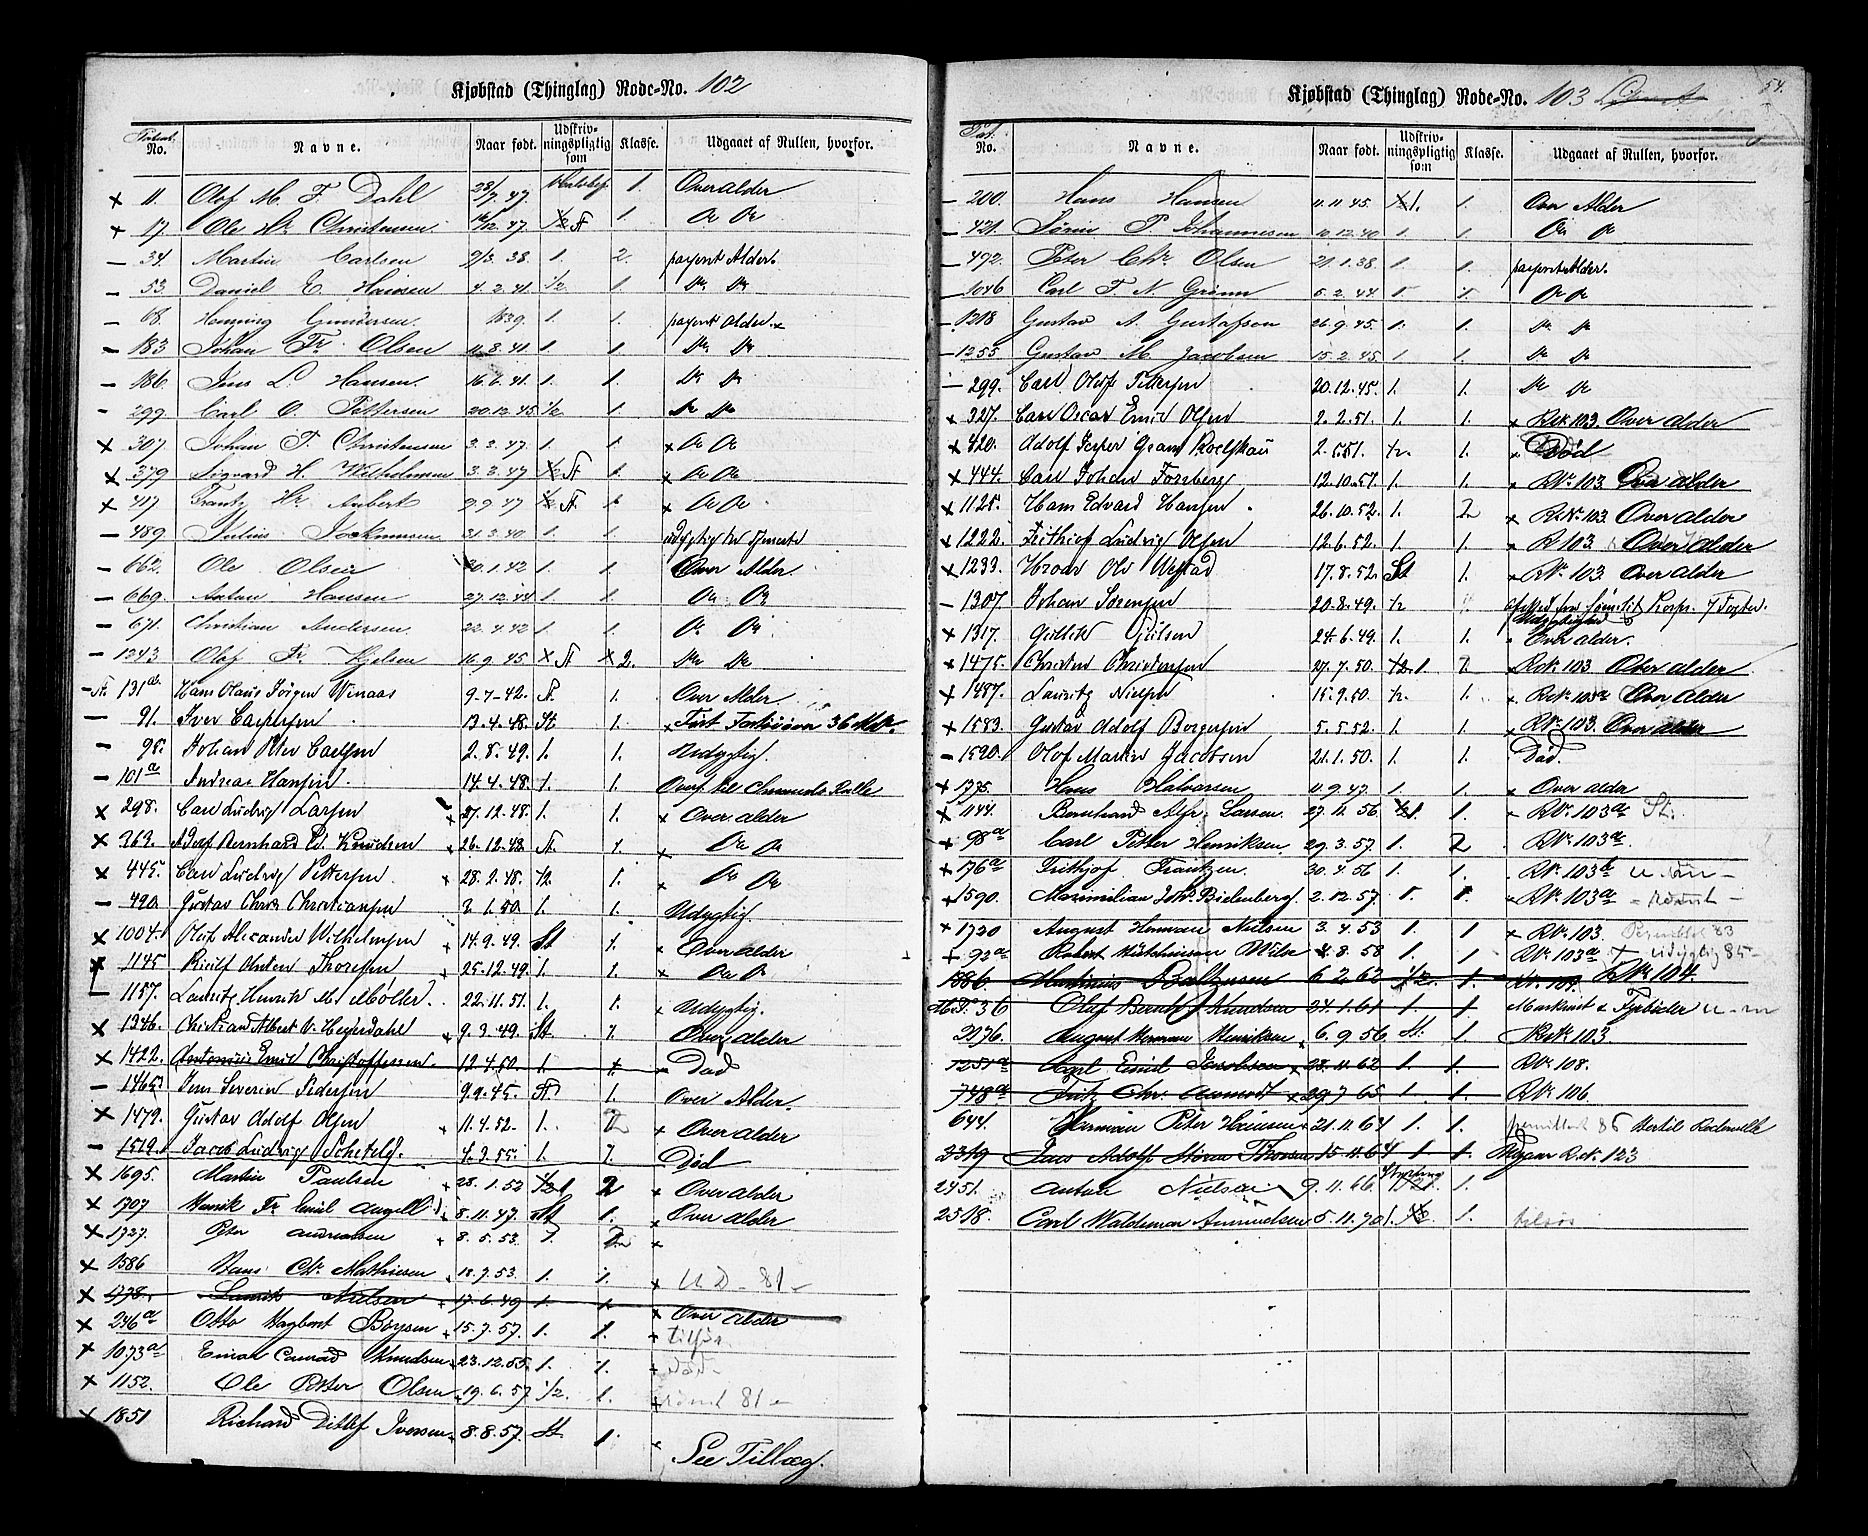 Kjøbstad (Thinglag) Rode-No. 102
No. Navne. Naar født. Udskriv-ningspligtig som Klasse. Udgaaet af Rullen, hvorfor.
x 11. Olof M. F. Dahl 28/7 47. 1. Over alder
x 17 Ole Hr. Christensen 47. 1/2 St 1. Do Do
- 34. Martin Carlsen 9/3. 38. 1. 2. Alder.
- 53. Daniel E. Hansen 4. 2. 41. 1/2 1. Do Do
- 68. Henning Gundersen 1839. 1. 1. alder.
- 183 Johan Fr. Olsen 11. 8. 41. 1. 1. Do Do
- 186. Jens L. Hansen. 16. 6. 41. 1. 1. Do Do
- 299. Carl O. Pettersen 20. 12. 45. 1/2 1. Do Do
x 307. Johan T. Christensen 3. 3. 47. 1. 1. x Do Do
x 379 Sigvard H. Wilhelmsen 3. 3. 47 1/2 St 1. x Do Do
x 417 Frantz Hr. Aubert 9. 9. 47 1/2 St 1. x Do Do
- 489. Julius Jockumsen 21. 3. 40. 1. 1.
- 662. Ole Olsen 20. 1. 42 1. 1. Over Alder.
- 669. Anton Hansen 27. 12. 44 1. 1. Do Do
- 671. Christian Andersen. 22. 4. 42 1. 1. Do Do
- 1343 Olof Fr. Kjelsen 16. 9. 45 x St x 2. Do Do
131 Hans Olaus Jørgen Winaas 9-7-42. St. 1. Over Alder
- 91. Iver Caspersen 13. 4. 48. St 1. 36
- 98. Johan Peter Carlsen 2. 8. 49. 1. 1. Udygtig.
- 101a Andreas Hansen. 14. 4. 48. 1. 1. Overf. til Rulle
x 298. Carl Ludvig Larsen 27. 12. 48. 1. 1. x Over alder
x 369. Adolf Bernhard Ed. Knudsen 26. 12. 48. St. 1. x Do Do
x 445. Carl Ludvig Pettersen 28. 2. 48. 1/2. 1. x Do Do
- 490. Gustav Chris Christiansen 3. 1. 50. 1. 1. Udygtig.
x 1004. Oluf Alexander Wilhelmsen 14. 9. 49. St 1. x Over alder
x 1145 Rudolf Anton Thoresen 25. 12. 49. 1. 1. x Do Do
- 1157. Lauritz Henrik M. Møller. 22. 11. 51. 1. 1. Udygtig.
x 1346. Christian Albert V. Heyerdahl 9. 3. 49. St. 1. Over alder
x 1422. Antonius Emil Christoffersen. 12. 4. 50. 1. 1. Død
- 1465. Jens Severin Pedersen 9. 9. 45. St 1. Over Alder.
x 1479. Gustav Adolf Olsen 11. 4. 52. 1. 2 x Over alder
- 1519. Jacob Ludvig Schetelig. 4. 3. 55. 1. 1. Død
x 1695. Martin Paulsen 28. 1. 52 1/2 1 2 x Over alder
x 1707 Henrik Fr. Emil Angell 8. 11. 47. St 1. x Over alder
x 1727. Peter Andreassen 8. 5. 53. 1 x
x 1586 Hans Chr. Mathiesen 18. 7. 53. 1. 1. x U D - 81 -
x 978. Laurits Nielsen 17. 6. 49 1. 1. x Over alder
x 246a Otto Hagbart Boysen 15. 7. 57. 1. 1. x tilsøs.
x 1073a Einar Conrad Knudsen 23. 12. 55. 1. 1. x død
x 1152. Ole Petter Olsen 19. 6. 57 1/2. 1. rømt 81 -
x 1851 Richard Ditlef Iversen 8. 8. 57. St. 1. x
See Tillæg.
54.
Kjøbstad (Thinglag) Rode-No. 103
No. Navne. Naar født. Udskriv-ningspligtig som Klasse. Udgaaet af Rullen, hvorfor.
- 200. Hans Hansen 11. 11 45. 1. 1. Over Alder
- 421. Søren P. Johannesen 10. 12. 40 1. 1. Do Do
- 472. Peter Chr. Olsen 21. 1. 38. 1. 1. Alder.
- 1046 Carl F. N. Grønn 5. 2. 44 1. 1. Do Do
- 1218 Gustav A. Gustafson 26. 9. 45. 1. 1. Do Do
- 1255 Gustav M. Jacobsen 15. 2. 45. 1 1. Do Do
- 299. Carl Oluf Pettersen 20. 12. 45. 1. 1. Do Do
x 327. Carl Oscar Emil Olsen 2. 2. 51. 1. 1. x R.N. 103. Over alder
x 420. Adolf Jesper Gram Roelfskau 2. 5. 51. 1/2. 1. x Død
x 444. Carl Johan Forsberg 12. 10. 51. 1. 1. x R.Nr. 103. Over alder
x 1125. Hans Edvard Hansen. 26. 10. 52. 1. 2 x R.N. 103. Over alder
x 1222. Frithiof Ludvig Olsen 12. 6. 52. 1. 1. x R 103. Over alder
x 1233. Hroar Olv Wefstad 17. 8. 52. St 1. x R.N. 103. Over alder
- 1307. Johan Sørensen 20. 8. 49. 1/2
x 1317. Gullik Nilsen 24. 6. 49. 1. 1. Over alder.
x 1475. Christen Christensen 27. 7. 50. 1/2. 1 2 R.N. 103 Over alder
x 1487. Lauritz Nielsen 15. 9. 50. 1/2. 1. x R.N. 103a Over alder
x 1583. Gustav Adolf Borgersen 5. 5. 52. 1. 1. x R.N. 103. Over alder
- 1590. Olof Martin Jacobsen 21. 1. 50. 1. 1. Død.
x 1775. Hans Halvorsen 11. 9. 47. 1. 1. x Over alder
x 1144. Bernhard Alfr. Larsen 27. 11. 56 1/2 1. 1. x R.N. 103a St.
x 98a Carl Petter Henriksen. 29. 3. 57. 1. 2 x R.N. 103a.
x 176a Frithjof Frantzen. 30. 4. 56 1. 1. x R.N. 103b
x 1590. Maximilian Joh. Bielenberg. 2. 12. 57. 1. 1. x R.N. 103a - rømt -
x 1720 August Herman Nielsen 3. 4. 53 1. 1 x R.N. 103 83
x 92a Robert Hutchinson Wilse 4. 8. 58 1. 1. R.N. 103a + Udygtig 85 -
586. Martinius Baltzersen 6. 2. 62 1/2. 1. R.N. 104.
36 Olaf Bernt Knudsen 24. 1. 61 1. 1 Maskinist & Fyrbøder
2036 August Herman Henriksen 6. 9. 56 St. 1. R.N. 103.
1251a Carl Emil Jacobsen 28. 11. 62 1. 1. R.N. 108.
748a Fritz Chr. Aamodt 29. 7 65 1. 1 R.N. 106.
644. Herman Peter Hansen 21. 11. 64 1. 1. 86
2319 Lars Adolf Thorsen 15. 11. 64 1 1. Udgaar R.N. 123
2451. Anton Nielsen 9. 11. 66. 1.
2518. Carl Waldemar Amundsen 5. 11. 70 1. 1. tilsøs